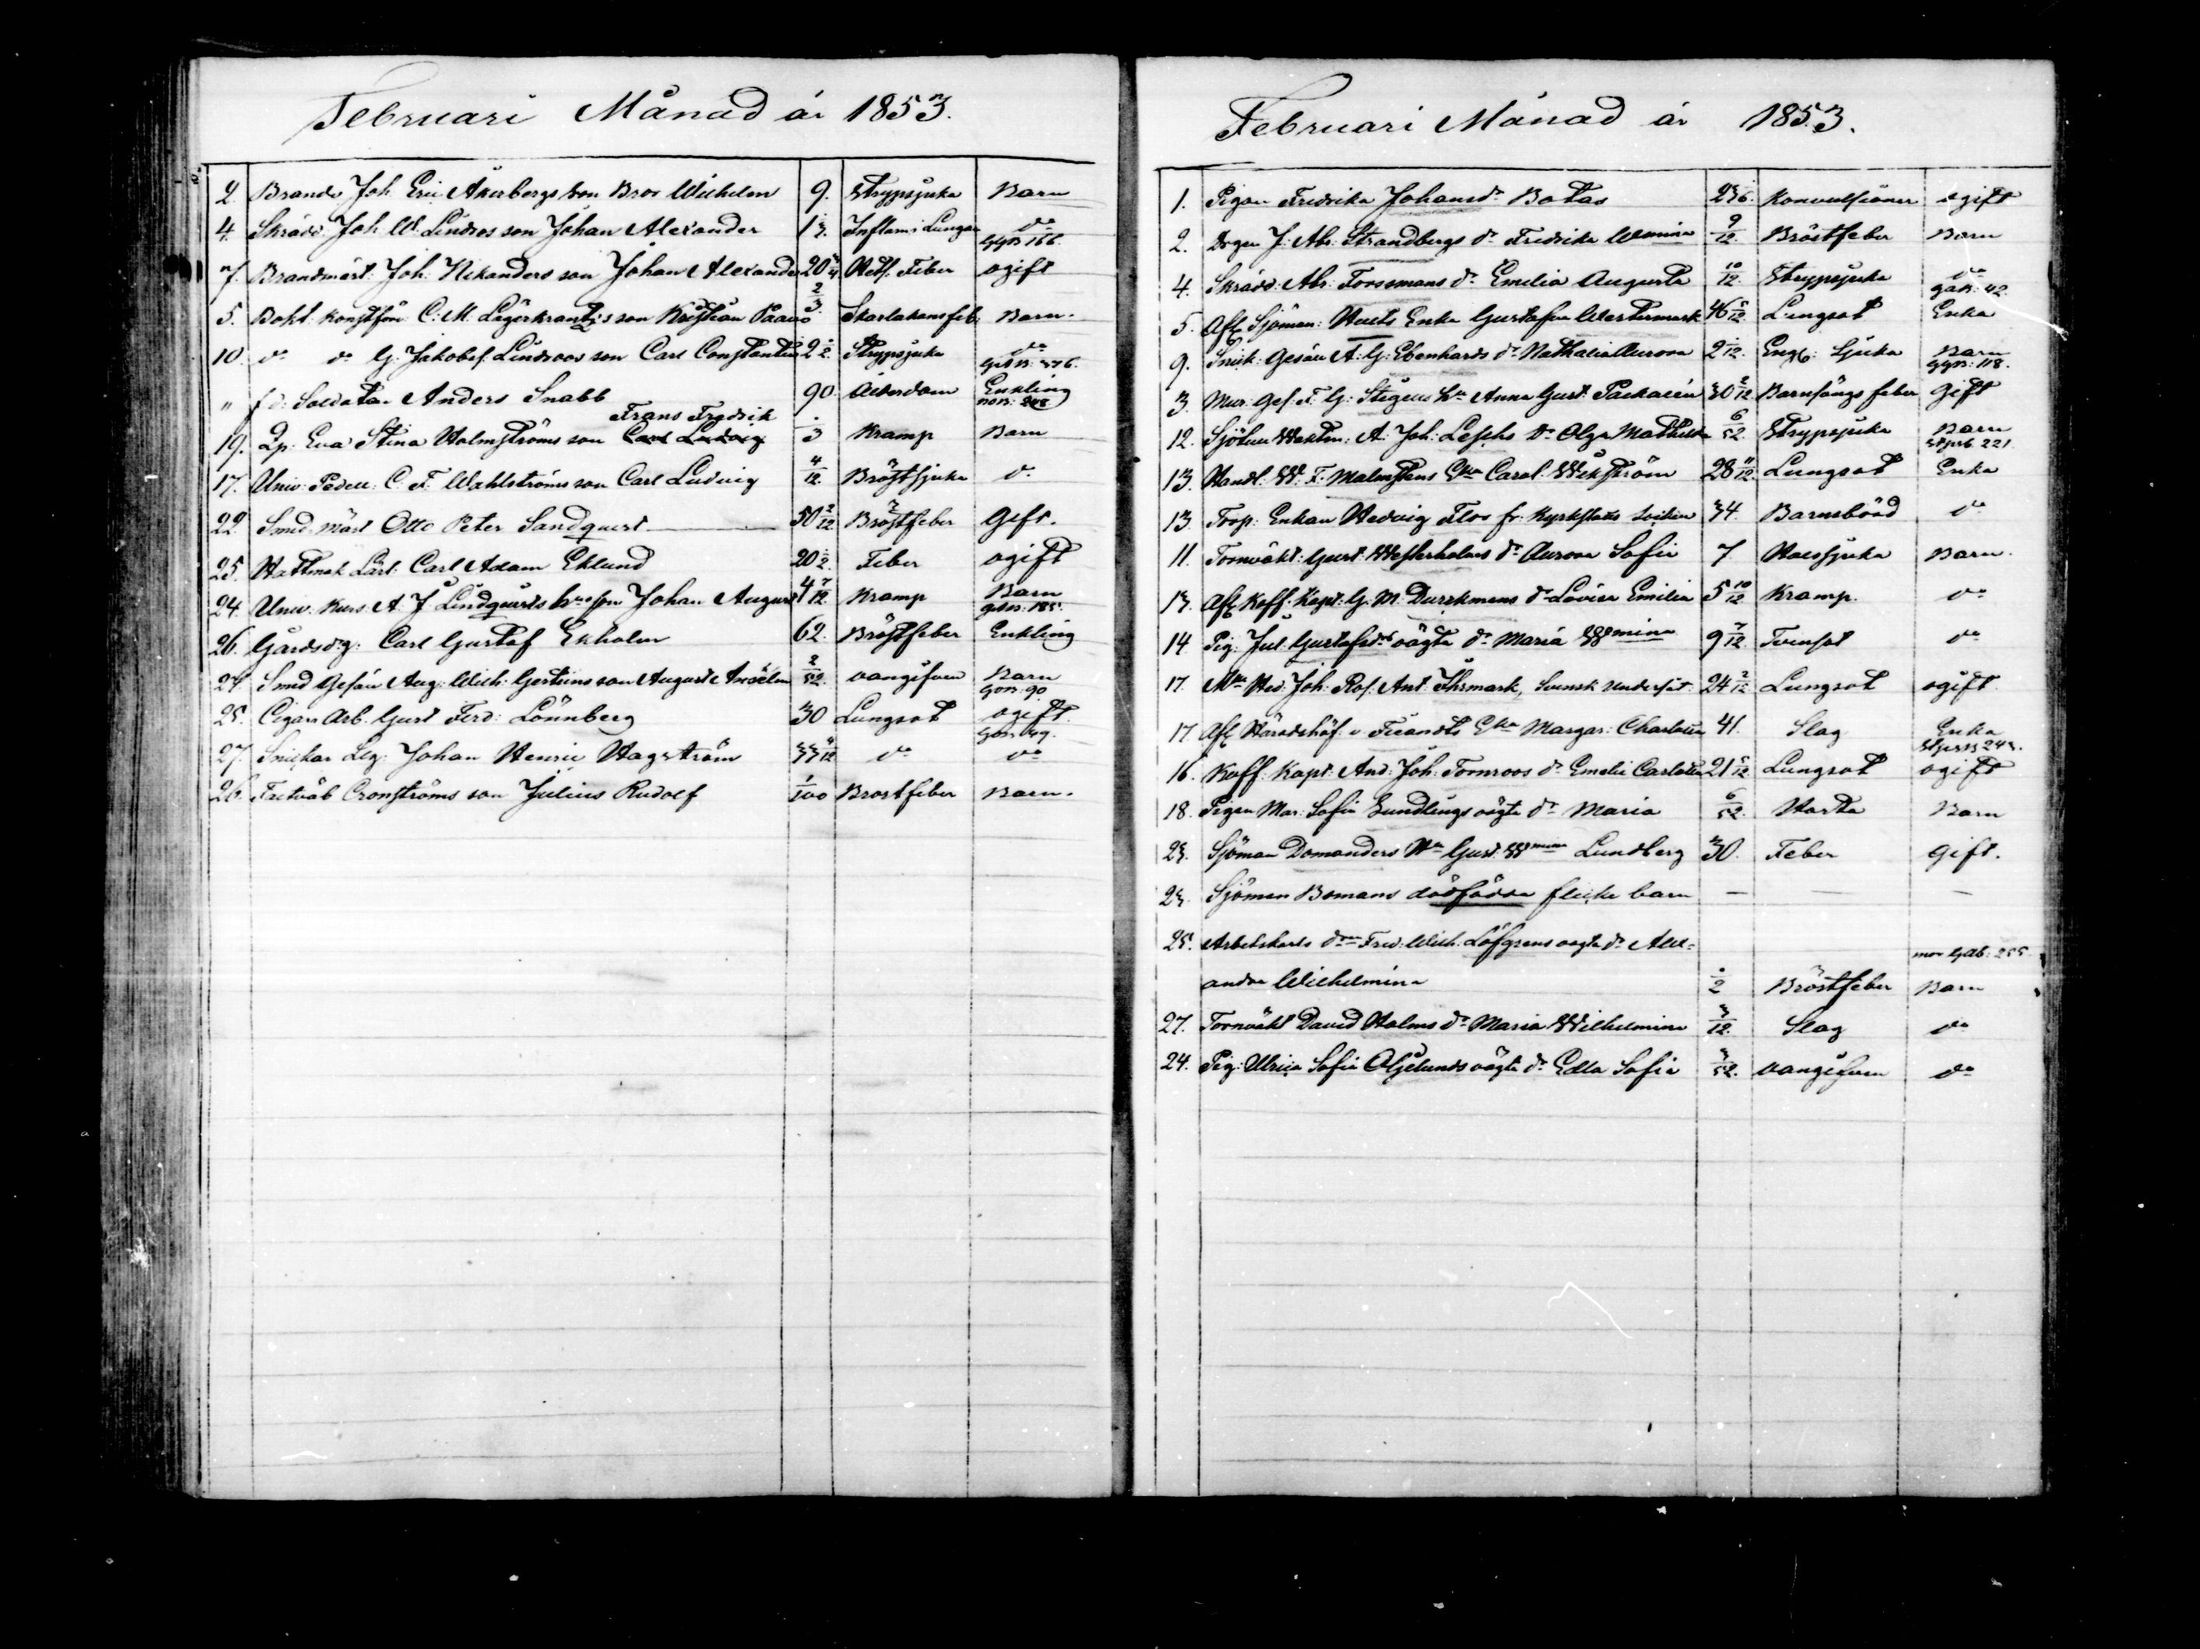 Februari Månad år 1853.
2. Joh. Eric Åkerbergs son Wilhelm 9. Strypsjuka Barn
4. Skrädd. Joh. W. Lindros son Johan Alexander Inflam: Lungor do
166.
7. Brandmäst. Joh. Nikanders son Johan Alexander 20 Feber ogift
5. C. M. Lägerkrantz's son Kristian 2/3 Skarlakansfeb. Barn.
10. do do G. Jakobsf. Lindroos son Carl Constantin 2 1/2 Strypsjuka do
376.
" f. d. Soldaten Anders Snabb 90 Ålderdom Enkling
Frans Fredrik
19. Qp. Eva Stina Holmströms son Carl Ludvig 1/3 Kramp Barn
17. Univ. Pedell. C. F. Wahlströms son Carl Ludvig 4/12 Bröstsjuka do
22. Smed. mäst Otto Peter Sandqvist 50 2/12 Bröstfeber Gift.
25. Hattmak. Lärl. Carl Adam Eklund 20 1/2 Feber ogift
24. Univ. Kurs. A. J. Lindquists son Johan August 4 7/12 Kramp Barn
26. Gårdsdg. Carl Gustaf Ekholm 62. Bröstfeber Enkling
24. Smed Gesän Aug. Wilh. son August 2/52 oangifven Barn
90
25. Cigarr Arb. Gust Ferd. Lönnberg 30 Lungsot ogift.
27. Snickar Johan Henric Hagström 33 do do
26. Cronströms son Julius Rudolf 1/100 Bröstfeber Barn.
Februari Månad år 1853.
1. Pigan Fredrika Johansdr Botas 23 Konvulsioner ogift
2. J. Abr. Strandbergs dr Fredrika Wmina 9/12. Bröstfeber Barn
4. Skrädd. Abr. Forssmans dr Emelia Augusta 10/12. Strypsjuka do
42.
5. Afl. Sjöman Enka Gustafva Westermark 46 5/12 Lungsot Enka
9. Snick. Gesän A. G. Ebenhards dr Nathalia Aurora 2 1/12. Eng. Sjuka Barn
118.
3. Mur. Ges. F. G. Stigells hu Anna Gust. Packalén 30 2/12 Barnsängs feber Gift
12. A. Joh. dr Olga Mathilda 6/52 Strypsjuka Barn
221
13. Handl. W. F. Malmstens Eka Carol. Wikström 28 11/12. Lungsot Enka
13 Torp. Enkan Hedvig Flos 34. Barnsbörd do
11. Tornväkt. Gust. Westerholms dr Aurora Sofia 7 Halssjuka Barn.
13. Afl. Koff. Kapt. G. M. dr Lovisa Emilia 5 10/12 Kramp. do
14. Pig. Jul. Gustafsdrs oägta dr Maria Wmina 9 7/12 Tvinsot do
17. Joh. Rof. Ant. Svensk undersåt 24 2/12 Lungsot ogift
17 Afl. Häradshöf. v. Ficandts Eka Margar. Charlotta 41. Slag Enka
243.
16. Koff. Kapt. And. Joh. Tornroos dr Emelie Carlotta 21 5/12 Lungsot ogift
18. Pigan Mar. Sofia Sundlings oägta dr Maria 6/52. Hosta Barn
23. Sjöman Domanders Hu Gust. Wmina Lundberg 30. Feber Gift.
23. Sjöman Bomans dödfödda flicke barn — — —
25. Arbetskarls drn Fred. Wilh. Löfgrens oägta dr Alex-
255
andra Wilhelmina 1/2 Bröstfeber Barn
27. Tornväkt David Holms dr Maria Wilhelmina 3/12. Slag do
24. Pig. Ulrica Sofia oägta dr Edla Sofia 3/52. oangifven do